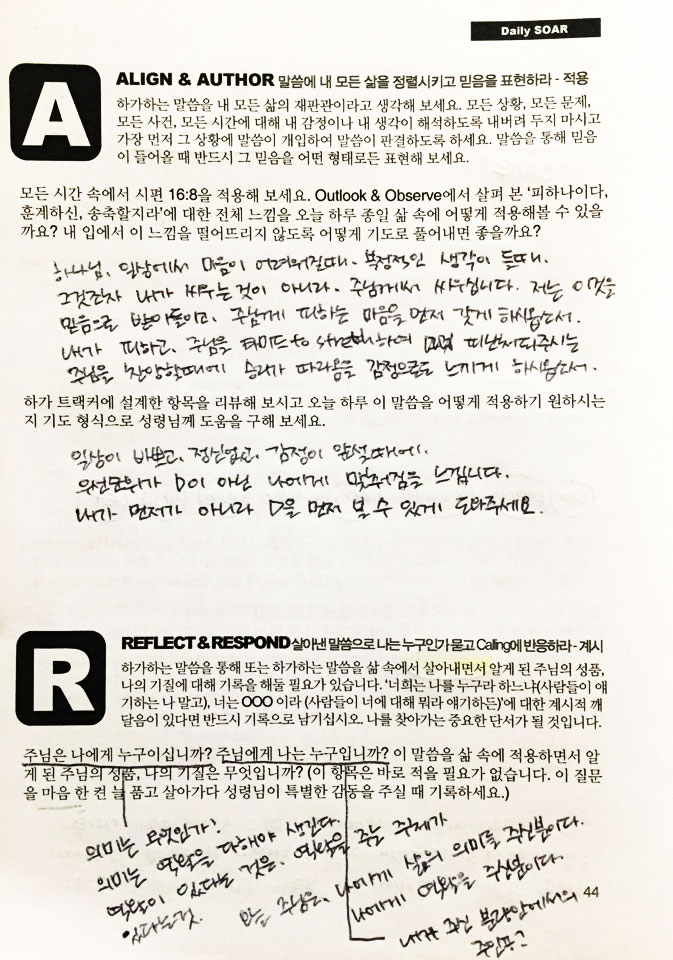 Daily SOAR
A
ALIGN & AUTHOR 말씀에 내 모든 삶을 정렬시키고 믿음을 표현하라 - 적용
하가하는 말씀을 내 모든 삶의 재판관이라고 생각해 보세요. 모든 상황, 모든 문제,
모든 사건, 모든 시간에 대해 내 감정이나 내 생각이 해석하도록 내버려 두지 마시고
가장 먼저 그 상황에 말씀이 개입하여 말씀이 판결하도록 하세요. 말씀을 통해 믿음
이 들어올 때 반드시 그 믿음을 어떤 형태로든 표현해 보세요.
모든 시간 속에서 시편 16:8을 적용해 보세요. Outlook & Observe에서 살펴 본 ‘피하나이다,
훈계하신, 송축할지라’에 대한 전체 느낌을 오늘 하루 종일 삶 속에 어떻게 적용해볼 수 있을
까요? 내 입에서 이 느낌을 떨어뜨리지 않도록 어떻게 기도로 풀어내면 좋을까요?
하나님, 일상에서 마음이 어려워질때. 부정적인 생각이 들때.
그것조차 내가 싸우는것이 아니라. 주님께서 싸우십니다. 저는 이것을
믿음으로 받아들이고, 주님께 피하는 마음을 먼저 갖게 하시옵소서.
내가 피하고, 주님을
주님을 찬양할때에 승리가 따라옴을 감정으로도 느끼게 하시옵소서.
하가 트랙커에 설계한 항목을 리뷰해 보시고 오늘 하루 이 말씀을 어떻게 적용하기 원하시는
지 기도 형식으로 성령님께 도움을 구해 보세요.
일상이 바쁘고, 정신없고, 감정이 앞설때에.
우선순위가 D이 아닌 나에게 맞춰짐을 느낍니다.
내가 먼저가 아니라 D을 먼저 볼 수 있게 도와주세요.
R
REFLECT & RESPOND 살아낸 말씀으로 나는 누구인가 묻고 Calling에 반응하라 - 계시
하가하는 말씀을 통해 또는 하가하는 말씀을 삶 속에서 살아내면서 알게 된 주님의 성품,
나의 기질에 대해 기록을 해둘 필요가 있습니다. ‘너희는 나를 누구라 하느냐(사람들이 얘
기하는 나 말고), 너는 OOO 이라 (사람들이 너에 대해 뭐라 얘기하든)’에 대한 계시적 깨
달음이 있다면 반드시 기록으로 남기십시오. 나를 찾아가는 중요한 단서가 될 것입니다.
주님은 나에게 누구이십니까? 주님에게 나는 누구입니까? 이 말씀을 삶 속에 적용하면서 알
게 된 주님의 성품, 나의 기질은 무엇입니까? (이 항목은 바로 적을 필요가 없습니다. 이 질문
을 마음 한 켠 늘 품고 살아가다 성령님이 특별한 감동을 주실 때 기록하세요.)
의미는 무엇인가?
의미는 역할을 다해야 생긴다.
역할이 있다는 것은. 역할을 주는 주체가
있다는것.
주님은. 나에게 삶의 의미를 주신분이다.
나에게 역할을 주신분이다.
내게 주신 분량안에서의
44